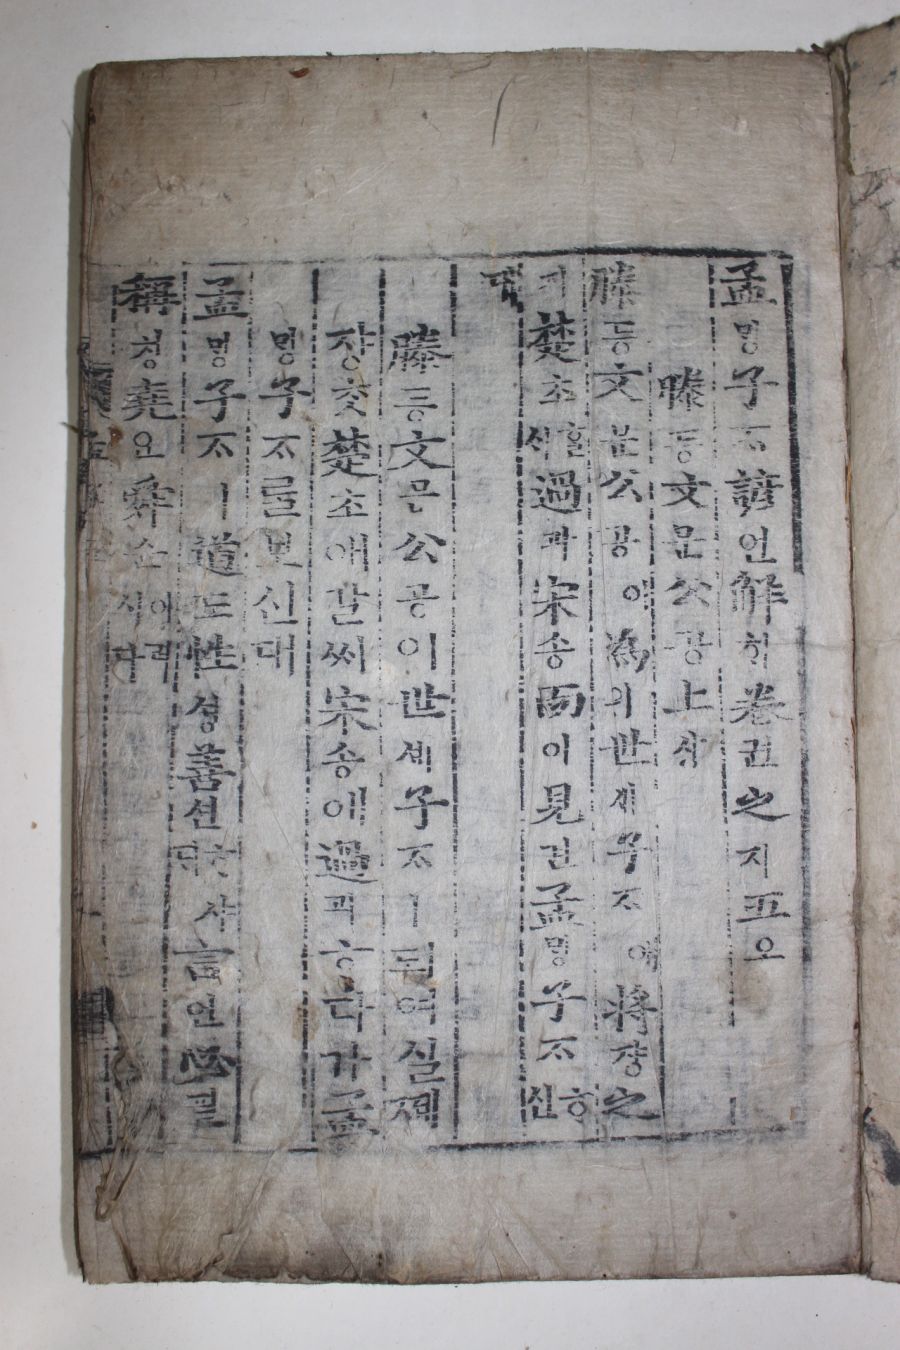 孟멩子ᄌᆞ諺언解ᄒᆡ卷권之지五오
滕등文문公공上샹
滕등文문公공이爲위世셰子ᄌᆞ애將쟝之
楚초ᄒᆞᆯᄉᆡ過과宋송而이見견孟멩子ᄌᆞᄒᆞ신
대
滕등文문公공이世셰子ᄌᆞㅣ되여실제
쟝ᄎᆞᆺ楚초애갈ᄉᆡ宋송애過과ᄒᆞ다가孟
멩子ᄌᆞᄅᆞᆯ보신대
孟멩子ᄌᆞㅣ道도性셩善션ᄒᆞ샤ᄃᆡ言언必필
稱칭堯요舜슌이러시다